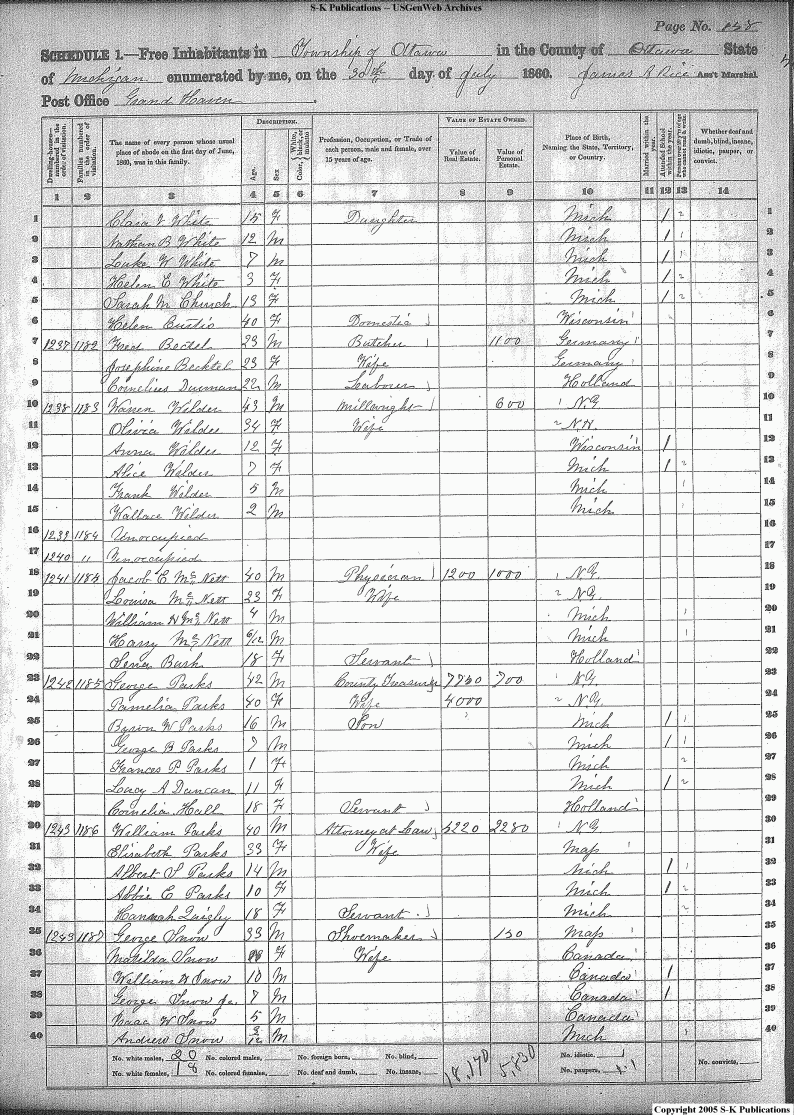 S-K Publications -- USGenWeb Archives
Page No. 158
SCHEDULE 1.—Free Inhabitants in Township of Ottawa in the County of Ottawa State
of Michigan enumerated by me, on the 30th day of July 1860. James A Rice Ass't Marshal
Post Office Grand Haven.
Dwelling-houses—numbered in the order of visitation. Families numbered in the order of visitation. The name of every person whose usual place of abode on the first day of June, 1860, was in this family. DESCRIPTION. Age. Sex. Color, White, black, or mulatto. Profession, Occupation, or Trade of each person, male and female, over 15 years of age. VALUE OF ESTATE OWNED. Value of Real Estate. Value of Personal Estate. Place of Birth, Naming the State, Territory, or Country. Married within the year. Attended School within the year. Whether deaf and dumb, blind, insane, idiotic, pauper, or convict.
1 2 3 4 5 6 7 8 9 10 11 12 13 14
1 Clara V. White 15 F Daughter Mich / 1
2 Nathan B White 12 M Mich / 2
3 Luke W White 7 M Mich / 3
4 Helen E White 3 F Mich / 4
5 Sarah M Church 13 F Mich / 5
6 Helen Custis 40 F Domestic Wisconsin 6
7 1237 1182 Fred Bectel 23 M Butcher 1100 Germany 7
8 Josephine Becktel 23 F Wife Germany 8
9 Cornelius Durman 22 M Labourer Holland 9
10 1238 1183 Warren Wilder 43 M Millwright 600 N.Y. 10
11 Olivia Wilder 34 F Wife N.H. 11
12 Anna Wilder 12 F Wisconsin / 12
13 Alice Wilder 7 F Mich / 13
14 Frank Wilder 5 M Mich 14
15 Wallace Wilder 2 M Mich 15
16 1239 1184 Unoccupied 16
17 1240 " Unoccupied 17
18 1241 1184 Jacob C McNett 40 M Physician 1200 1000 N.Y. 18
19 Louisa McNett 23 F Wife N.Y. 19
20 William H McNett 4 M Mich 20
21 Harry McNett 6/12 M Mich 21
22 Bush 18 F Servant Holland 22
23 1242 1185 George Parks 42 M County Treasurer 7750 700 N.Y. 23
24 Pamelia Parks 40 F Wife 4000 N.Y. 24
25 Byron W Parks 16 M Son Mich / 25
26 George B Parks 7 M Mich / 26
27 Frances P Parks 1 F Mich 27
28 Lucy A Duncan 11 F Mich / 28
29 Cornelia Hall 18 F Servant Holland 29
30 1243 1186 William Parks 40 M Attorney at Law 5220 2280 N.Y. 30
31 Elisabeth Parks 33 F Wife Mass 31
32 Albert S Parks 14 M Mich / 32
33 Abbie E Parks 10 F Mich / 33
34 Hannah Quigley 18 F Servant Mich 34
35 1243 1187 George Snow 33 M Shoemaker 150 Mass 35
36 Matilda Snow F Wife Canada 36
37 William H Snow 10 M Canada / 37
38 George Snow Jr. 7 M Canada / 38
39 Isaac W Snow 5 M Canada 39
40 Andrew Snow 3/12 M Mich 40
No. white males, 20 No. colored males, No. foreign born, No. blind, No. idiotic,
No. white females, 18 No. colored females, No. deaf and dumb, No. insane, 18,170 5,830 No. paupers, No. convicts,
Copyright 2005 S-K Publications